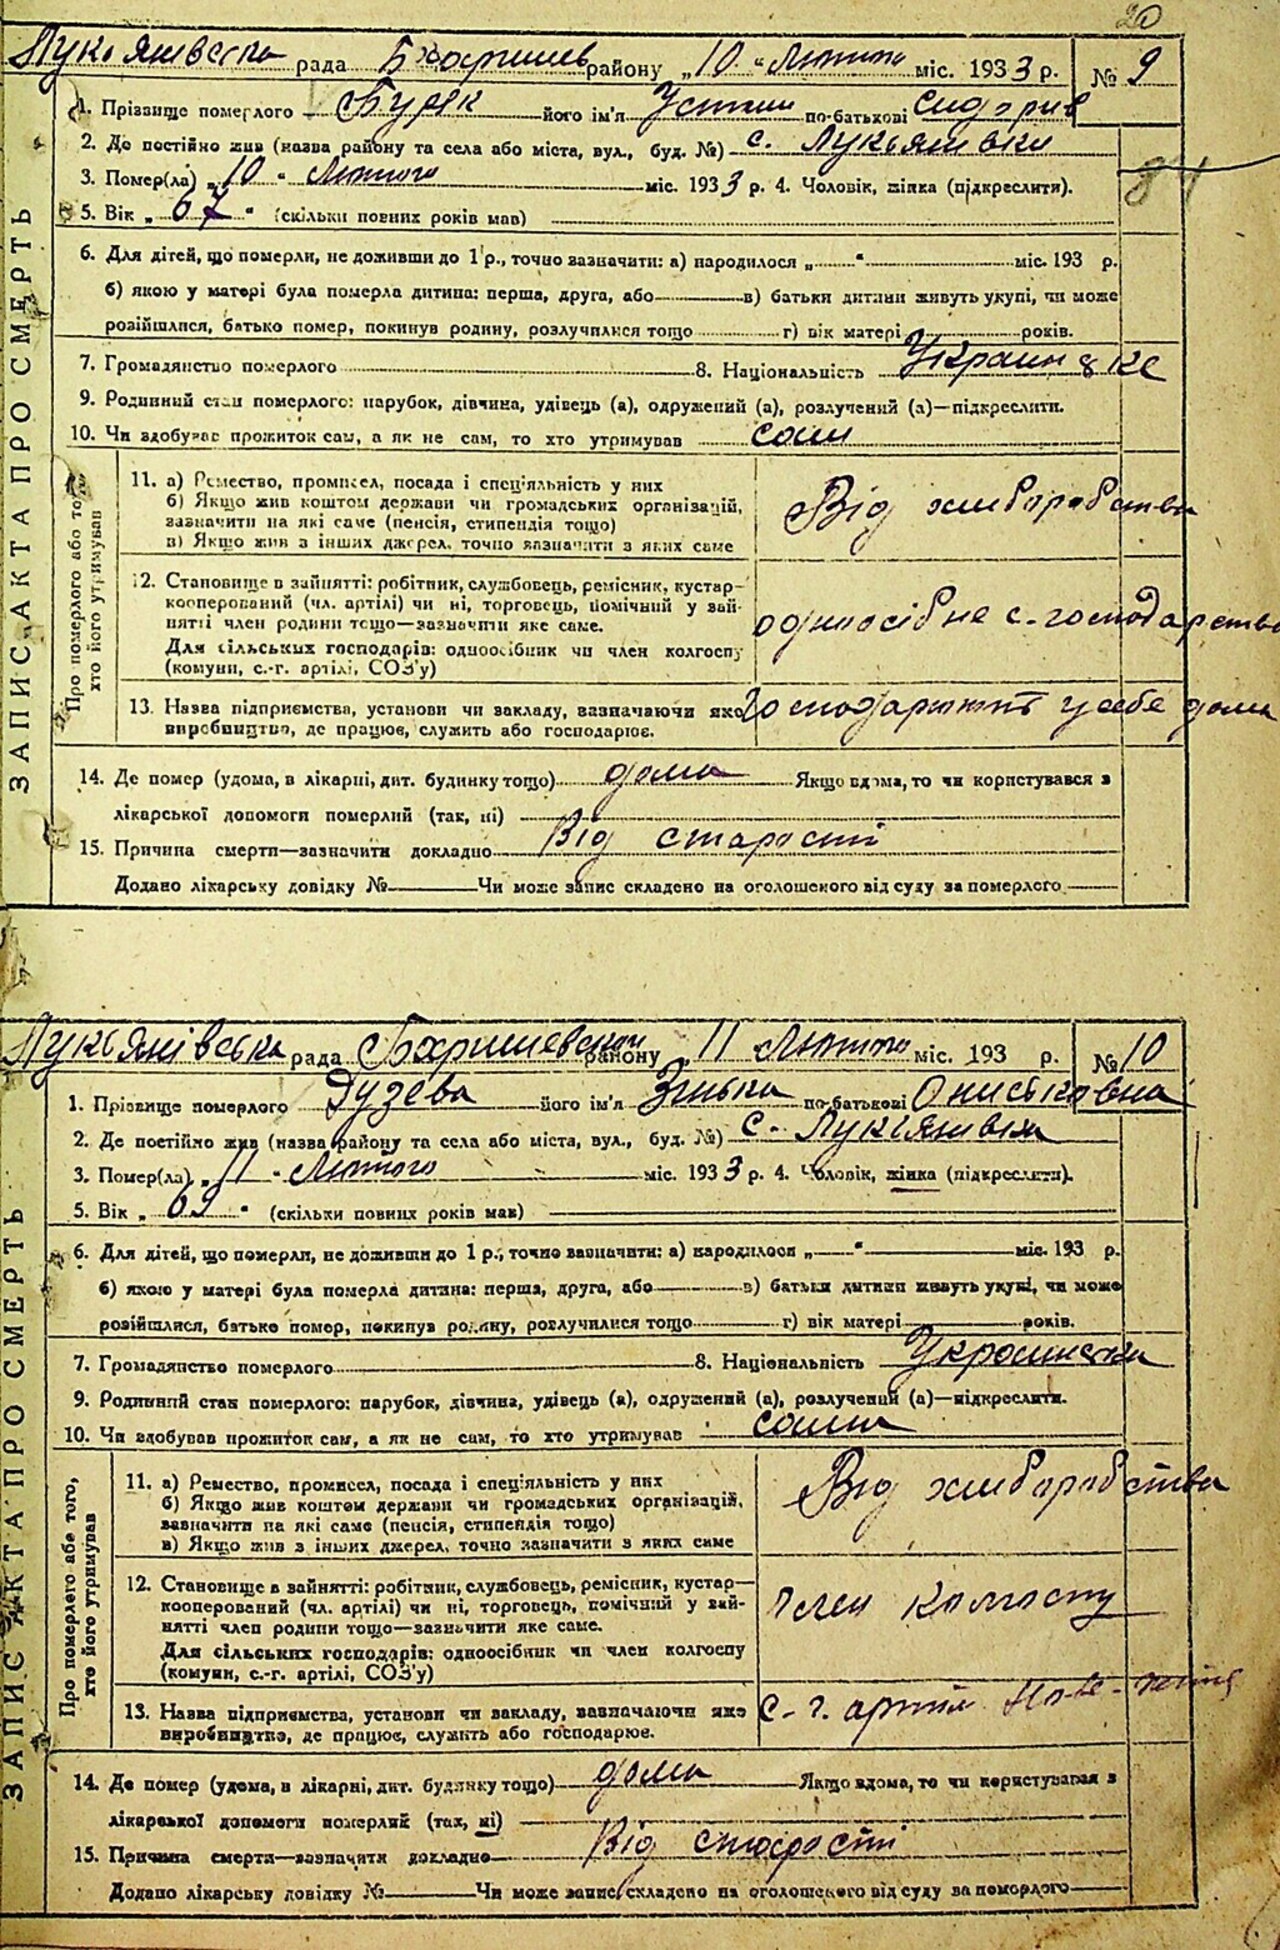 20
Лукьянівська рада Баришев району „10 “ Лютого міс. 1933 р. № 9
1. Прізвище померлого Буряк його ім'я Устин по-батькові Сидорив
2. Де постійно жив (назва району та села або міста, вул., буд. №) с. Лукьянівки
3. Помер(ла) „10 “ Лютого міс. 1933 р. 4. Чоловік, жінка (підкреслити).
5. Вік „ 67 “ (скільки повних років мав)
6. Для дітей, що померли, не доживши до 1 р., точно зазначити: а) народилося „ “ міс. 193 р.
б) якою у матері була померла дитина: перша, друга, або в) батьки дитини живуть укупі, чи може
розійшлися, батько помер, покинув родину, розлучилися тощо г) вік матері років.
7. Громадянство померлого 8. Національність
9. Родинний стан померлого: парубок, дівчина, удівець (а), одружений (а), розлучений (а)—підкреслити.
10. Чи здобував прожиток сам, а як не сам, то хто утримував сам
ЗАПИС АКТА ПРО СМЕРТЬ
Про померлого або того,
хто його утримував
11. а) Ремество, промисел, посада і спеціяльність у них
б) Якщо жив коштом держави чи громадських організацій,
зазначити на які саме (пенсія, стипендія тощо)
в) Якщо жив з інших джерел, точно зазначити з яких саме
Від хліборобства
12. Становище в зайнятті: робітник, службовець, ремісник, кустар—
кооперований (чл. артілі) чи ні, торговець, помічний у зай-
нятті член родини тощо—зазначити яке саме.
Для сільських господарів: одноосібник чи член колгоспу
(комуни, с.-г. артілі, СОЗ'у)
одноосібне с-господарство
13. Назва підприємства, установи чи закладу, зазначаючи яке
виробництво, де працює, служить або господарює.
Господарюють у себе дома
14. Де помер (удома, в лікарні, дит. будинку тощо) дома Якщо вдома, то чи користувався з
лікарської допомоги померлий (так, ні)
15. Причина смерти—зазначити докладно Від старости
Додано лікарську довідку № Чи може запис складено на оголошеного від суду за померлого
Лукьянівська рада району 11 Лютого міс. 193 р. № 10
1. Прізвище померлого Дузева його ім'я Зінька по-батькові Ониськовна
2. Де постійно жив (назва району та села або міста, вул., буд. №) с. Лукьянівки
3. Помер(ла) „ 11 “ Лютого міс. 1933 р. 4. Чоловік, жінка (підкреслити).
5. Вік „ 69 “ (скільки повних років мав)
6. Для дітей, що померли, не доживши до 1 р., точно зазначити: а) народилося „ “ міс. 193 р.
б) якою у матері була померла дитина: перша, друга, або в) батьки дитини живуть укупі, чи може
розійшлися, батько помер, покинув родину, розлучилися тощо г) вік матері років.
7. Громадянство померлого 8. Національність Украинська
9. Родинний стан померлого: парубок, дівчина, удівець (а), одружений (а), розлучений (а)—підкреслити.
10. Чи здобував прожиток сам, а як не сам, то хто утримував сама
ЗАПИС АКТА ПРО СМЕРТЬ
Про померлого або того,
хто його утримував
11. а) Ремество, промисел, посада і спеціяльність у них
б) Якщо жив коштом держави чи громадських організацій,
зазначити на які саме (пенсія, стипендія тощо)
в) Якщо жив з інших джерел, точно зазначити з яких саме
Від хліборобства
12. Становище в зайнятті: робітник, службовець, ремісник, кустар—
кооперований (чл. артілі) чи ні, торговець, помічний у зай-
нятті член родини тощо—зазначити яке саме.
Для сільських господарів: одноосібник чи член колгоспу
(комуни, с.-г. артілі, СОЗ'у)
член колгоспу
13. Назва підприємства, установи чи закладу, зазначаючи яке
виробництво, де працює, служить або господарює.
с-г. артіл
14. Де помер (удома, в лікарні, дит. будинку тощо) дома Якщо вдома, то чи користувався з
лікарської допомоги померлий (так, ні)
15. Причина смерти—зазначити докладно Від старости
Додано лікарську довідку № Чи може запис складено на оголошеного від суду за померлого